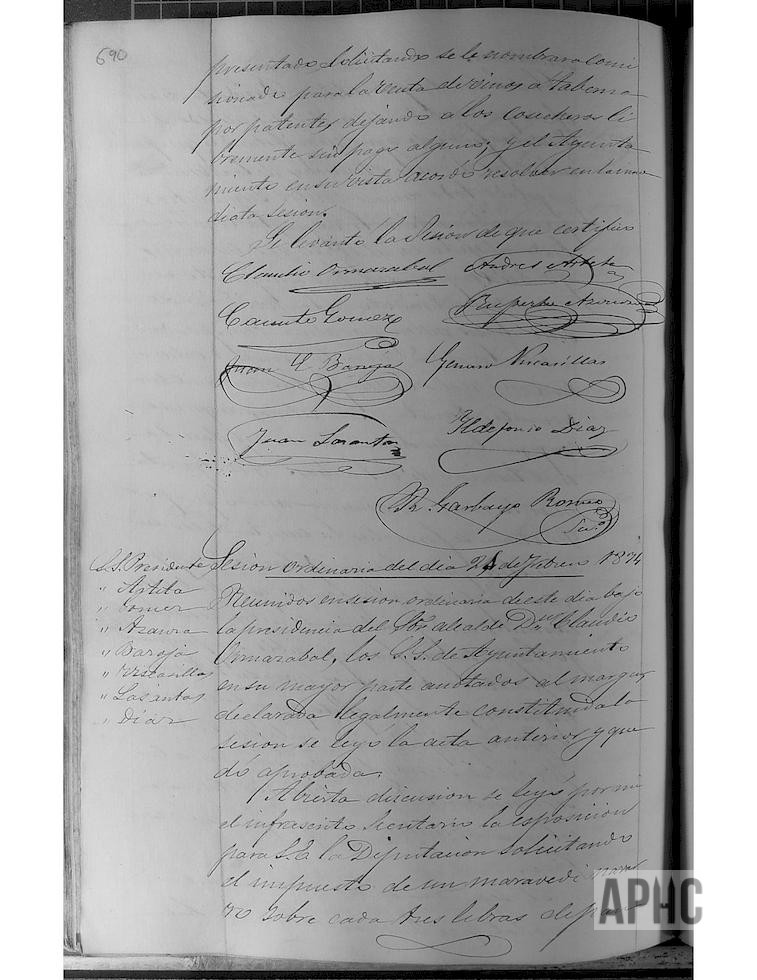 690
presentado solicitando se le nombrara comi
sionado para la venta de vinos a taberna
por patente, dejando a los cosecheros li
bremente sin pago alguno; y el Ayunta
miento en su vista acordó resolver en la inme
diata sesion.
Se levantó la Sesion de que certifico
Claudio Ormazabal Andres Arteta
Camilo Gomez Ruperto Azaura
Juan E Baroja Genaro Viscasillas
Juan Lasantas Yldefonso Diaz
R Garbayo Romeo
Srio.
S.S. Presidente
" Arteta
" Gomez
" Azaura
" Baroja
" Viscasillas
" Lasantas
" Diaz
Sesion ordinaria del dia 21 de Febrero 1874
Reunidos en sesion ordinaria de este dia bajo
la presidencia del Sor. alcalde Dn. Claudio
Ormazabal, los S.S. de Ayuntamiento
en su mayor parte anotados al margen,
declarada legalmente constituida la
sesion se leyo la acta anterior y que
dó aprobada.
Abierta discusion se leyó por mi
el infrascrito Secretario la esposicion
para S.E. la Diputacion solicitando
el impuesto de un maravedi navar
ro sobre cada tres libras de pan
APHC